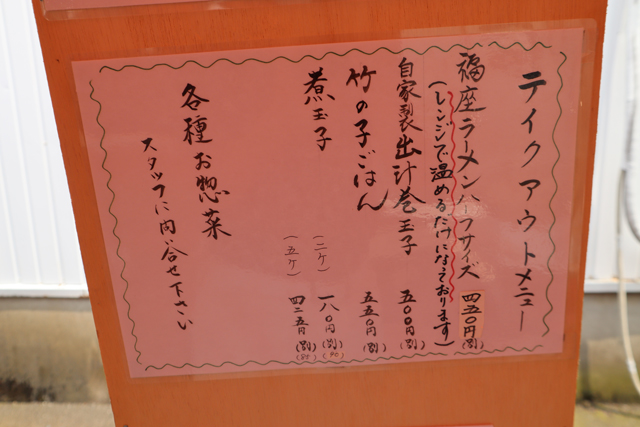 テイクアウトメニュー
福座ラーメンハーフサイズ 四五〇円(別)
(レンジで温めるだけになっております)
自家製出汁巻玉子 五〇〇円(別)
竹の子ごはん 五五〇円(別)
煮玉子 (二ケ) 一八〇円(別)
(五ケ) 四二五円(別)
各種お惣菜
スタッフに問い合せ下さい